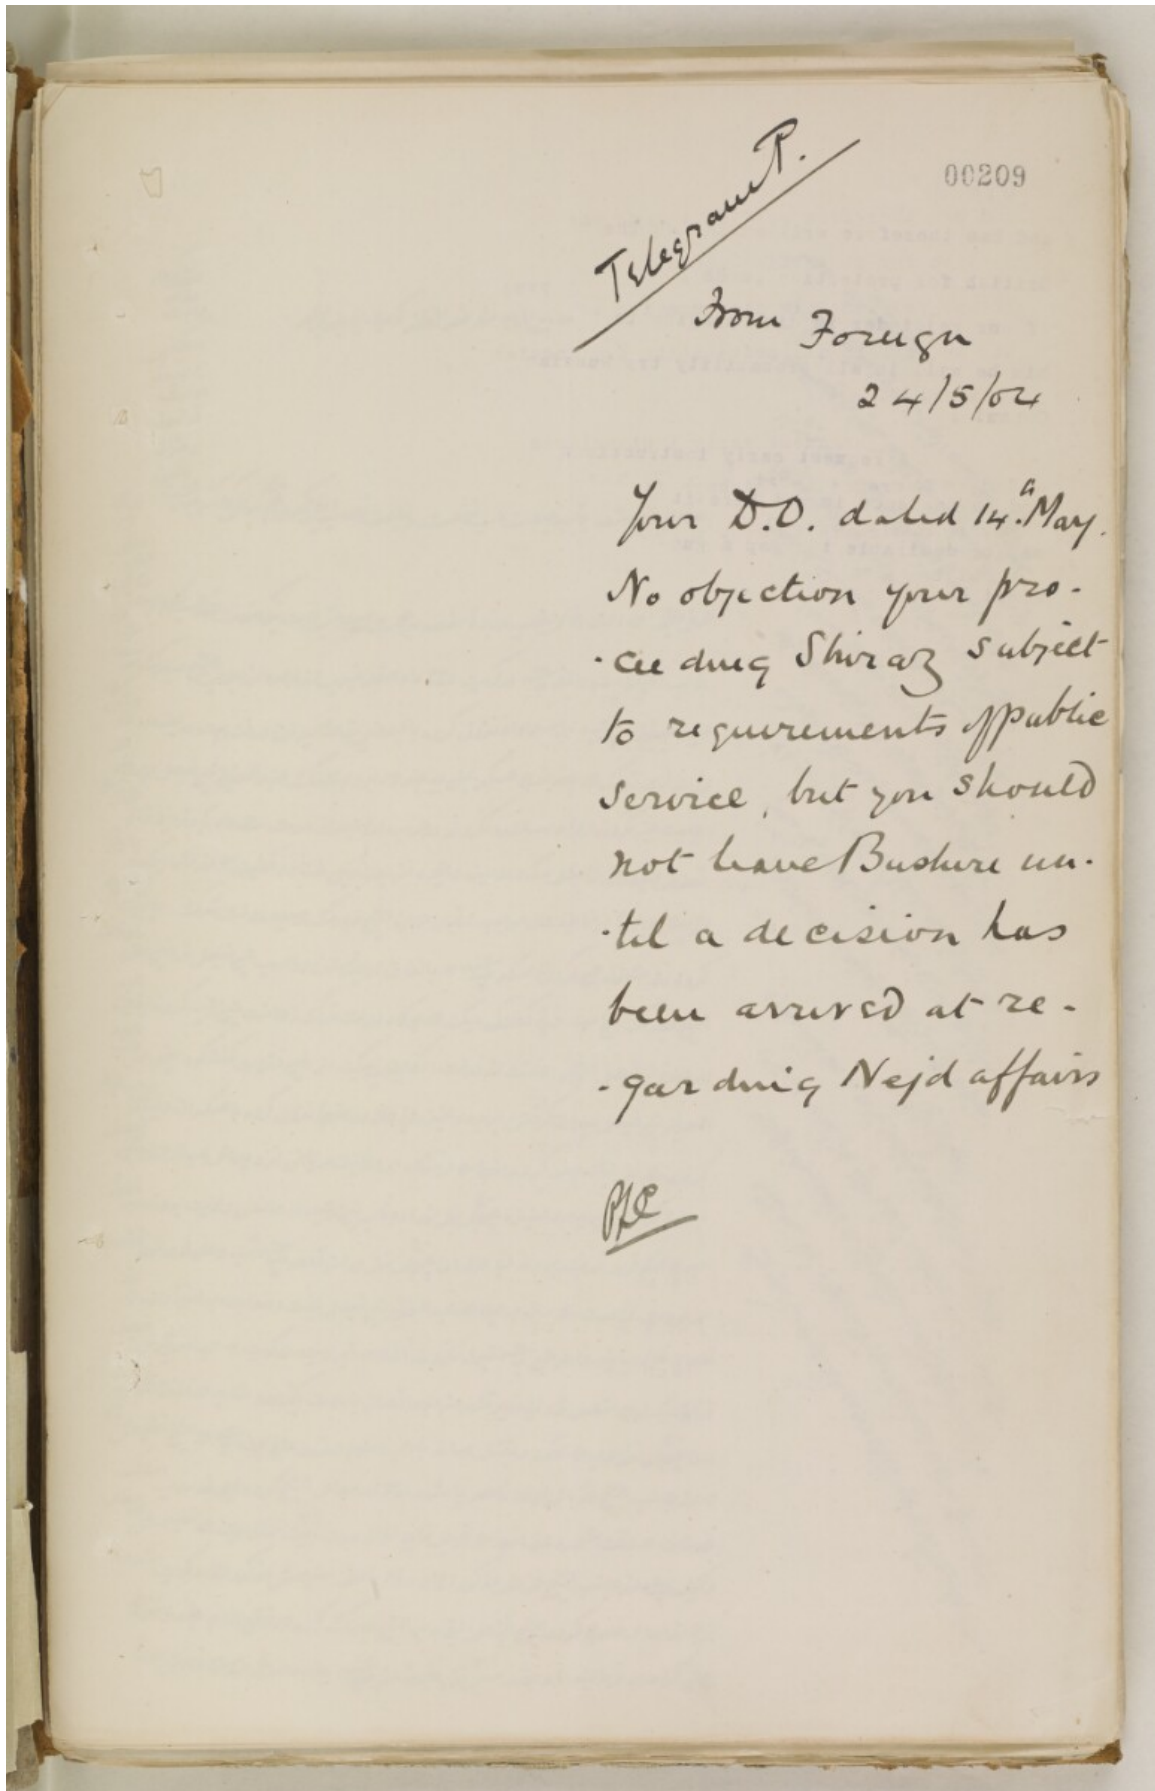 00209
Telegram P.
From Foreign
24/5/04
Your D.O. dated 14th May.
No objection your pro-
-ceeding Shiraz subject
to requirements of public
service, but you should
not leave Bushire un-
-til a decision has
been arrived at re-
-garding Nejd affairs